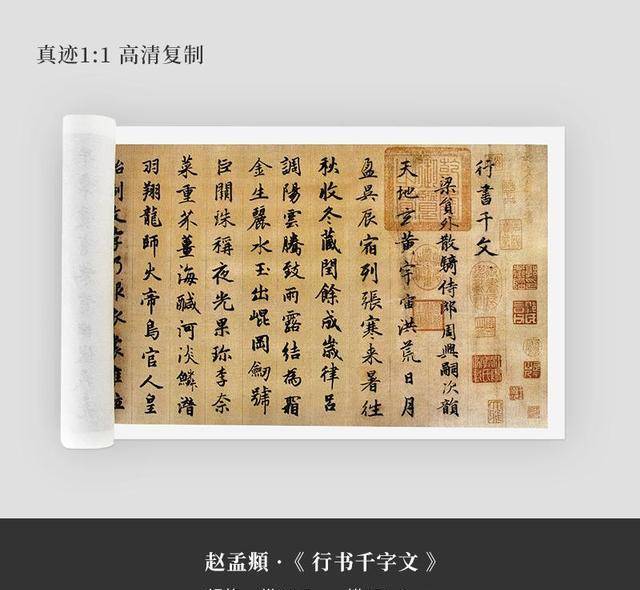 真迹1:1 高清复制
行書千文
梁員外散騎侍郎周興嗣次韻
天地玄黃宇宙洪荒日月
盈昃辰宿列張寒来暑往
秋收冬藏閏餘成歲律呂
調陽雲騰致雨露結為霜
金生麗水玉出崐岡劒號
巨闕珠稱夜光果珎李柰
菜重芥薑海醎河淡鱗潛
羽翔龍師火帝鳥官人皇
始制文字乃服衣裳推位
赵孟頫·《 行书千字文 》